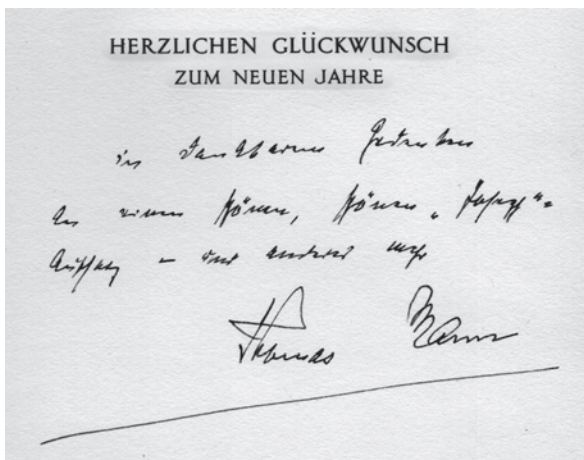 HERZLICHEN GLÜCKWUNSCH
ZUM NEUEN JAHRE
in dankbarem Gedenken
an einen schönen, schönen „Joseph"-
Aufsatz – und anderes mehr
Thomas Mann